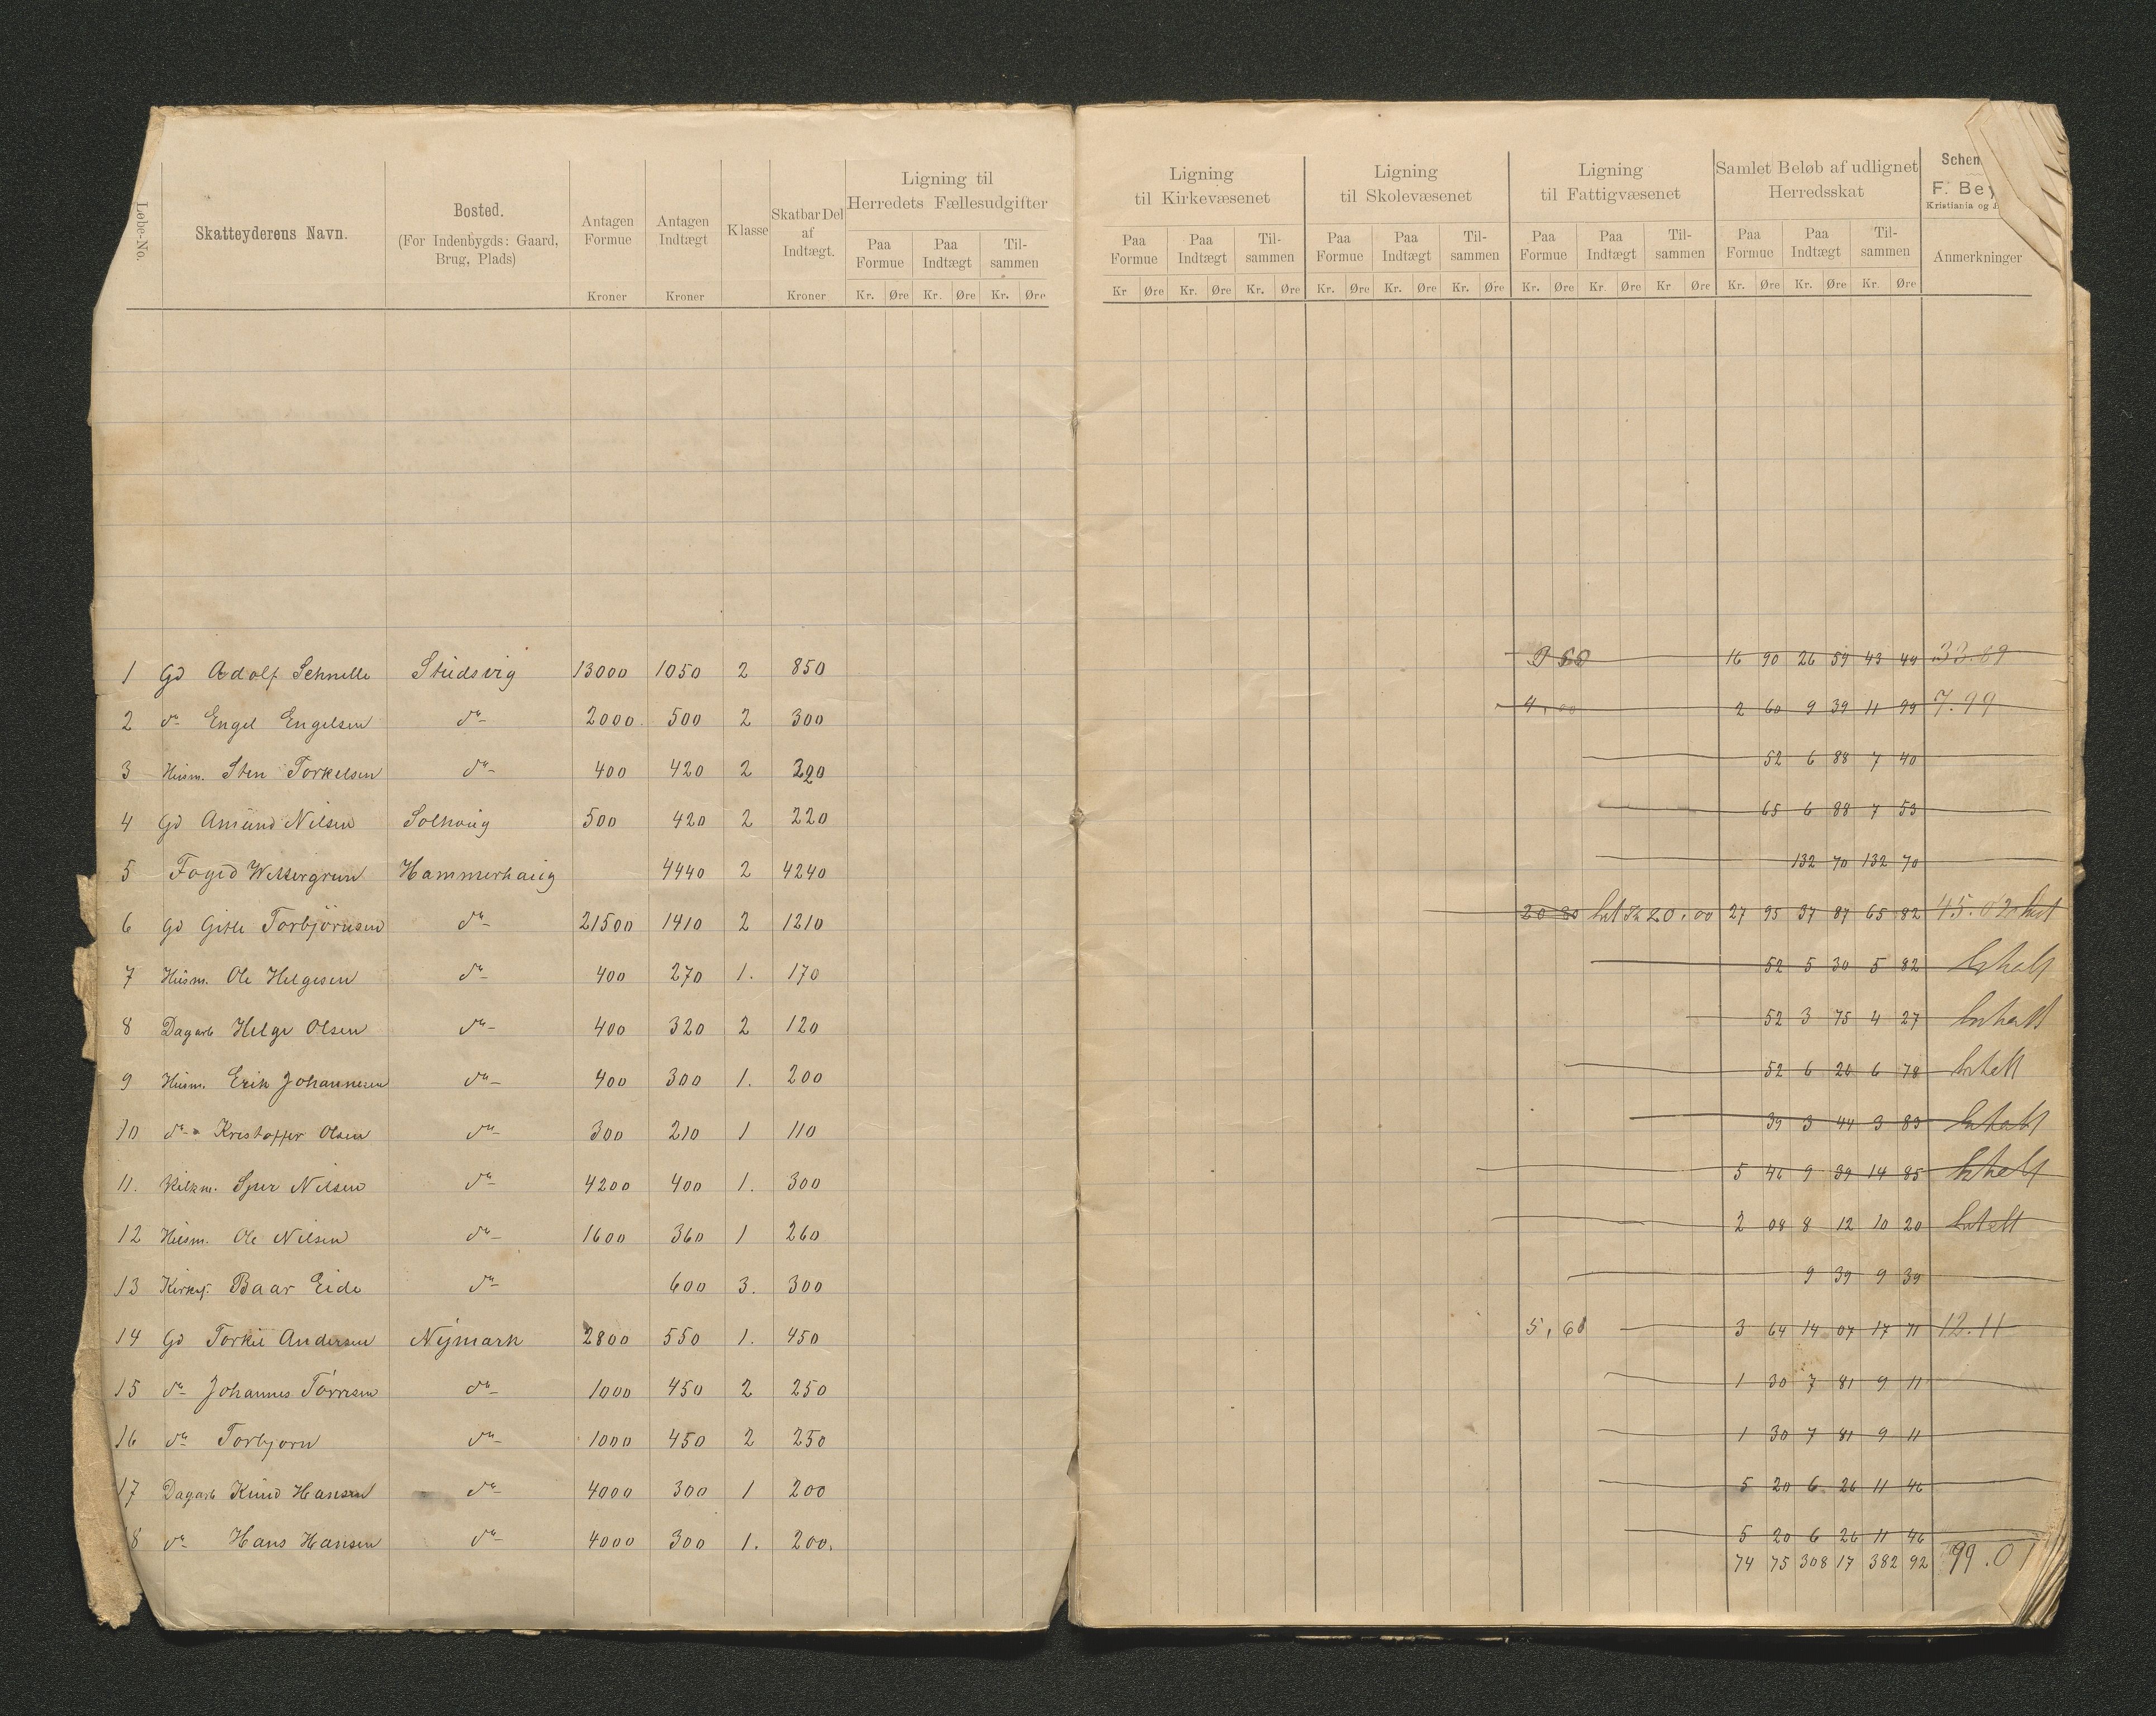 Løbe-No. Skatteyderens Navn. Bosted. (For Indenbygds: Gaard, Brug, Plads) Antagen Formue Antagen Indtægt Klasse Skatbar Del af Indtægt. Ligning til Herredets Fællesudgifter
Paa Formue Paa Indtægt Til-sammen
Kroner Kroner Kroner Kr. Øre Kr. Øre Kr. Øre
Ligning til Kirkevæsenet Ligning til Skolevæsenet Ligning til Fattigvæsenet Samlet Beløb af udlignet Herredsskat Schem
F. Bey
Kristiania og
Paa Formue Paa Indtægt Til-sammen Paa Formue Paa Indtægt Til-sammen Paa Formue Paa Indtægt Til-sammen Paa Formue Paa Indtægt Til-sammen Anmerkninger
Kr Øre Kr. Øre Kr. Øre Kr. Øre Kr. Øre Kr. Øre Kr. Øre Kr. Øre Kr Øre Kr. Øre Kr. Øre Kr. Øre
1 Gd Adolf Schnelle Studsvig 13000 1050 2 850 16 90 26 59 43 49 33.89
2 do Engel Engelsen do 2000 500 2 300 4,00 2 60 9 39 11 99 7.99
3 Husm. Sten Torkelsen do 400 420 2 220 52 6 88 7 40
4 Gd Amund Nilsen Solhoug 500 420 2 220 65 6 88 7 53
5 Foged Wettergren Hammerhaug 4440 2 4240 132 70 132 70
6 Gd Gitle Torbjörnsen do 21500 1410 2 1210 20 80 20.00 27 95 37 87 65 82 45.02
7 Husm. Ole Helgesen do 400 270 1. 170 52 5 30 5 82
8 Dagarb Helge Olsen do 400 320 2 120 52 3 75 4 27
9 Husm. Erik Johannesen do 400 300 1. 200 52 6 26 6 78
10 do Kristoffer Olsen do 300 210 1 110 39 3 44 3 83
11. Sjur Nilsen do 4200 400 1. 300 5 46 9 39 14 85
12 Husm. Ole Nilsen do 1600 360 1 260 2 08 8 12 10 20
13 Baar Eide do 600 3. 300 9 39 9 39
14 Gd Torkil Andersen Nymark 2800 550 1. 450 5,60 3 64 14 07 17 71 12.11
15 do Johannes Törresen do 1000 450 2 250 1 30 7 81 9 11
16 do Torbjorn do 1000 450 2 250 1 30 7 81 9 11
17 Dagarb Knud Hansen do 4000 300 1 200 5 20 6 26 11 46
8 do Hans Hansen do 4000 300 1. 200. 5 20 6 26 11 46
74 75 308 17 382 92 99.01